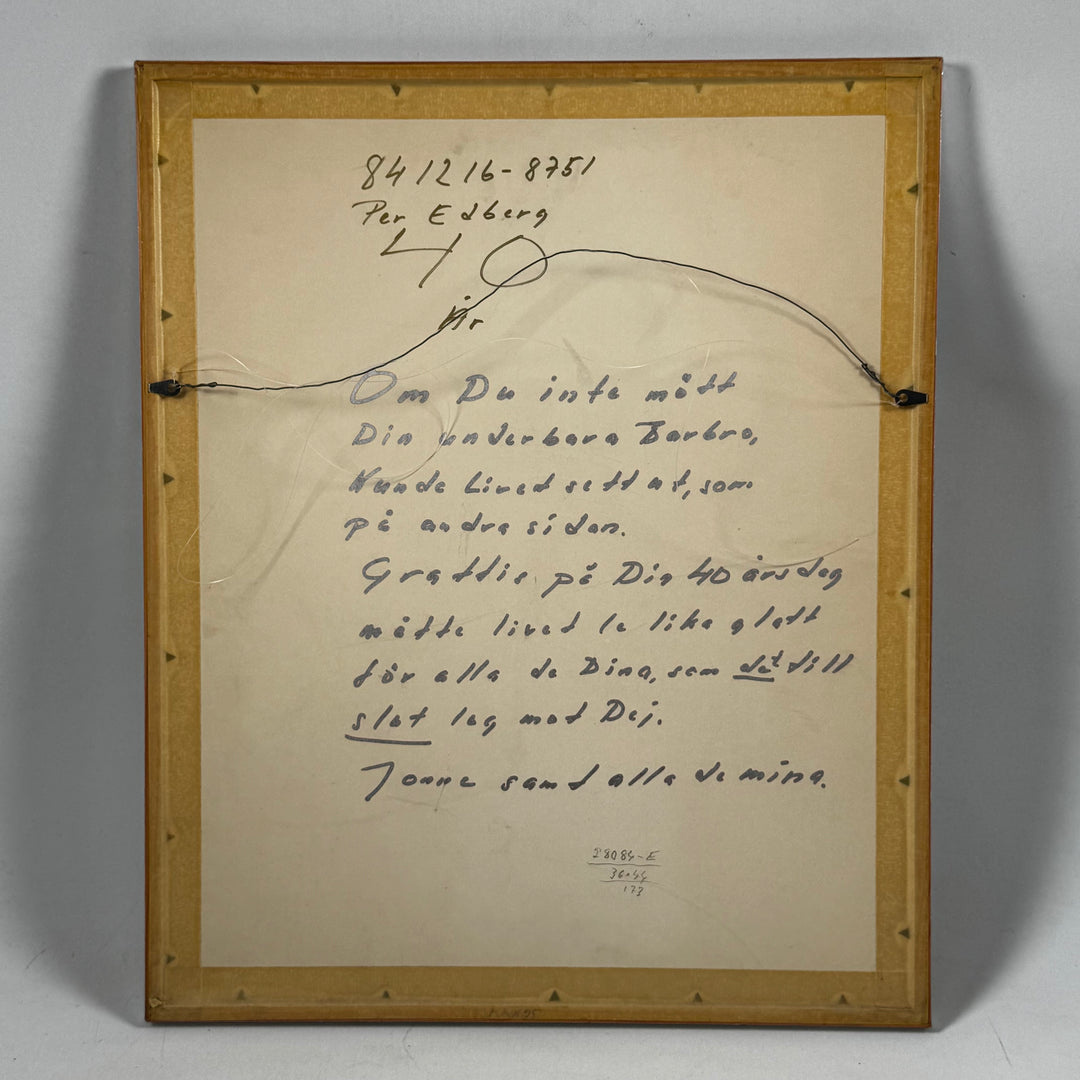 841216-8751
Per Edberg
40
År
Om Du inte mött
Din underbara Barbro,
Kunde Livet sett ut, som
på andra sidan.
Grattis på Din 40 årsdag
måtte livet le lika glatt
för alla de Dina, som det till
slut log mot Dej.
Jonne samt alla de mina.
28084-E
36×44
173